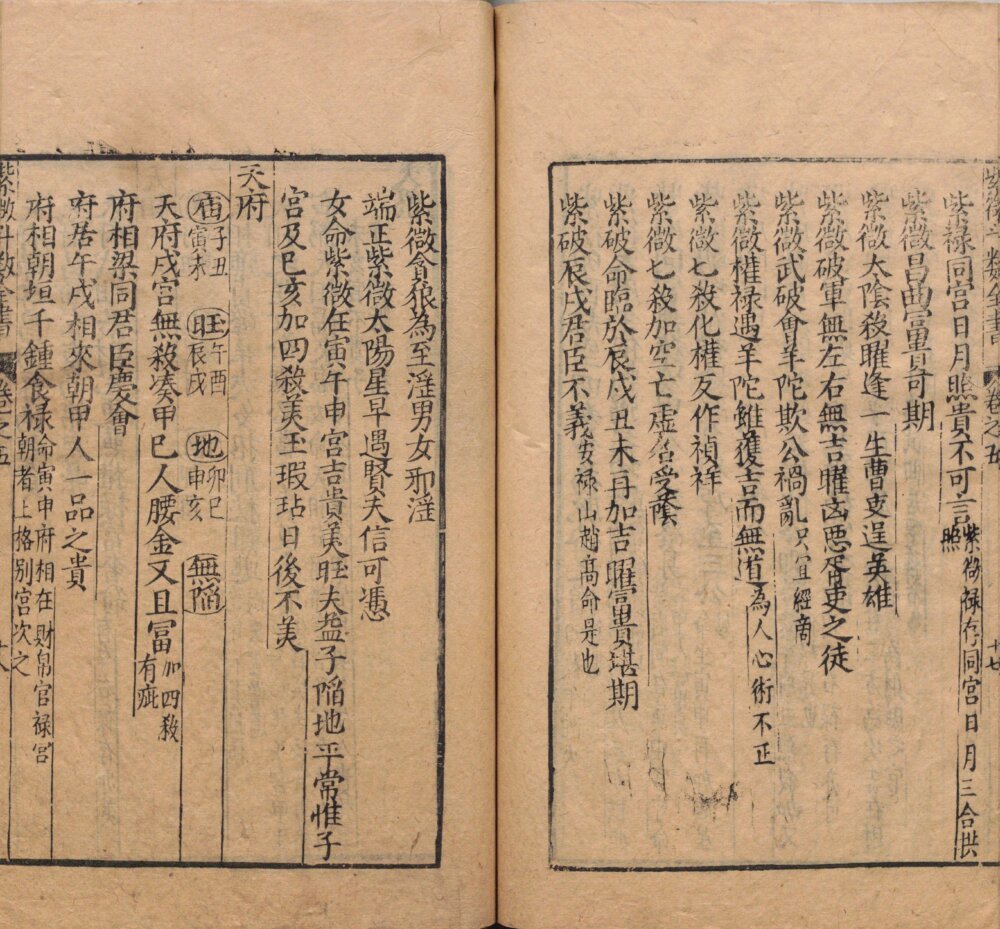 紫微斗數全書 卷之五 十七
紫祿同宮日月照貴不可言紫微祿存同宮日月三合拱照
紫微昌曲冨貴奇期
紫微太陰殺曜逢一生曹吏逞英雄
紫微破軍無左右無吉曜凶惡胥吏之徒
紫微武破會羊陀欺公禍亂只宜經商
紫微權祿遇羊陀雖獲吉而無道為人心術不正
紫微七殺化權反作禎祥
紫微七殺加空亡虛名受蔭
紫破命臨於辰戌丑未再加吉曜富貴堪期
紫破辰戌君臣不義安禄山趙高命是也
紫微貪狼為至淫男女邪淫
端正紫微太陽星早遇賢夫信可憑
女命紫微在寅午申宮吉貴美旺夫益子陷地平常惟子
宮及巳亥加四殺美玉瑕玷日後不美
天府
廟子丑寅未 旺午酉辰戌 地卯巳申亥 無陷
天府戌宮無殺湊甲巳人腰金又且冨加四殺有疵
府相梁同君臣慶會
府居午戌相來朝甲人一品之貴
府相朝垣千鍾食禄命寅申府相在財帛官禄宮朝者上格別宮次之
紫微斗數全書 卷之五 十八